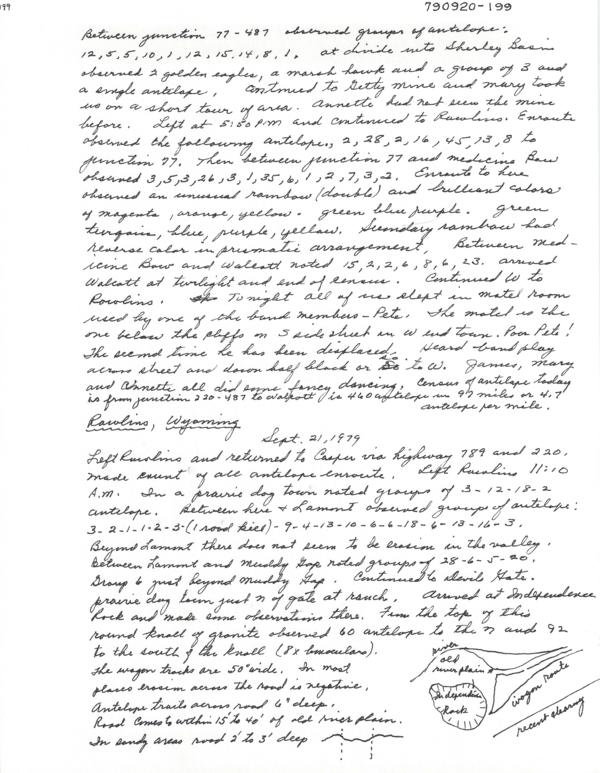 199
790920-199
Between junction 77-487 observed groups of antelope:
12, 5, 5, 10, 1, 12, 15, 14, 8, 1, at divide into Sherley Basin
observed 2 golden eagles, a marsh hawk and a group of 3 and
a single antelope, continued to Getty mine and mary took
us on a short tour of area. Annette had not seen the mine
before. Left at 5:50 P.M and continued to Rawlins. Enroute
observed the following antelope,, 2, 28, 2, 16, 45, 13, 8 to
junction 77. Then between junction 77 and medicine Bow
observed 3, 5, 3, 26, 3, 1, 35, 6, 1, 2, 7, 3, 2. Enroute to here
observed an unusual rainbow (double) and brilliant colors
of magenta, orange, yellow. green blue purple. green
turquois, blue, purple, yellow. Secondary rainbow had
reverse color in prismatic arrangement, Between Med-
icine Bow and Walcott noted 15, 2, 2, 6, 8, 6, 23. arrived
Walcott at twilight and end of census. Continued W to
Rawlins. Tonight all of us slept in motel room
used by one of the band members - Pete. The motel is the
one below the cliffs on S side street in W end town. Poor Pete!
The second time he has been displaced. Heard band play
across street and down half block or so to W. James, Mary
and Annette all did some fancy dancing. Census of antelope today
is from junction 220-487 to Walcott is 460 antelope in 97 miles or 4.7
antelope per mile.
Rawlins, Wyoming
Sept. 21, 1979
Left Rawlins and returned to Casper via highway 789 and 220.
made count of all antelope enroute. Left Rawlins 11:10
A.M. In a prairie dog town noted groups of 3-12-18-2
antelope. Between here + Lamont observed groups of antelope:
3-2-1-1-2-5-(1 road kill)-9-4-13-10-6-6-18-6-13-16-3.
Beyond Lamont there does not seem to be erosion in the valley.
Between Lamont and Muddy Gap noted groups of 28-6-5-20.
Group 6 just beyond Muddy Gap. Continued to Devils Gate.
prairie dog town just n of gate at ranch. Arrived at Independence
Rock and make some observations there. From the top of this
round knoll of granite observed 60 antelope to the n and 92
to the south of the knoll (8x binoculars).
The wagon tracks are 50" wide. In most
places erosion across the road is negative.
Antelope trails across road 6" deep.
Road comes to within 15' to 40' of old river plain.
In sandy areas road 2' to 3' deep
river
old
river plain
Independence
Rock
wagon route
recent clearing